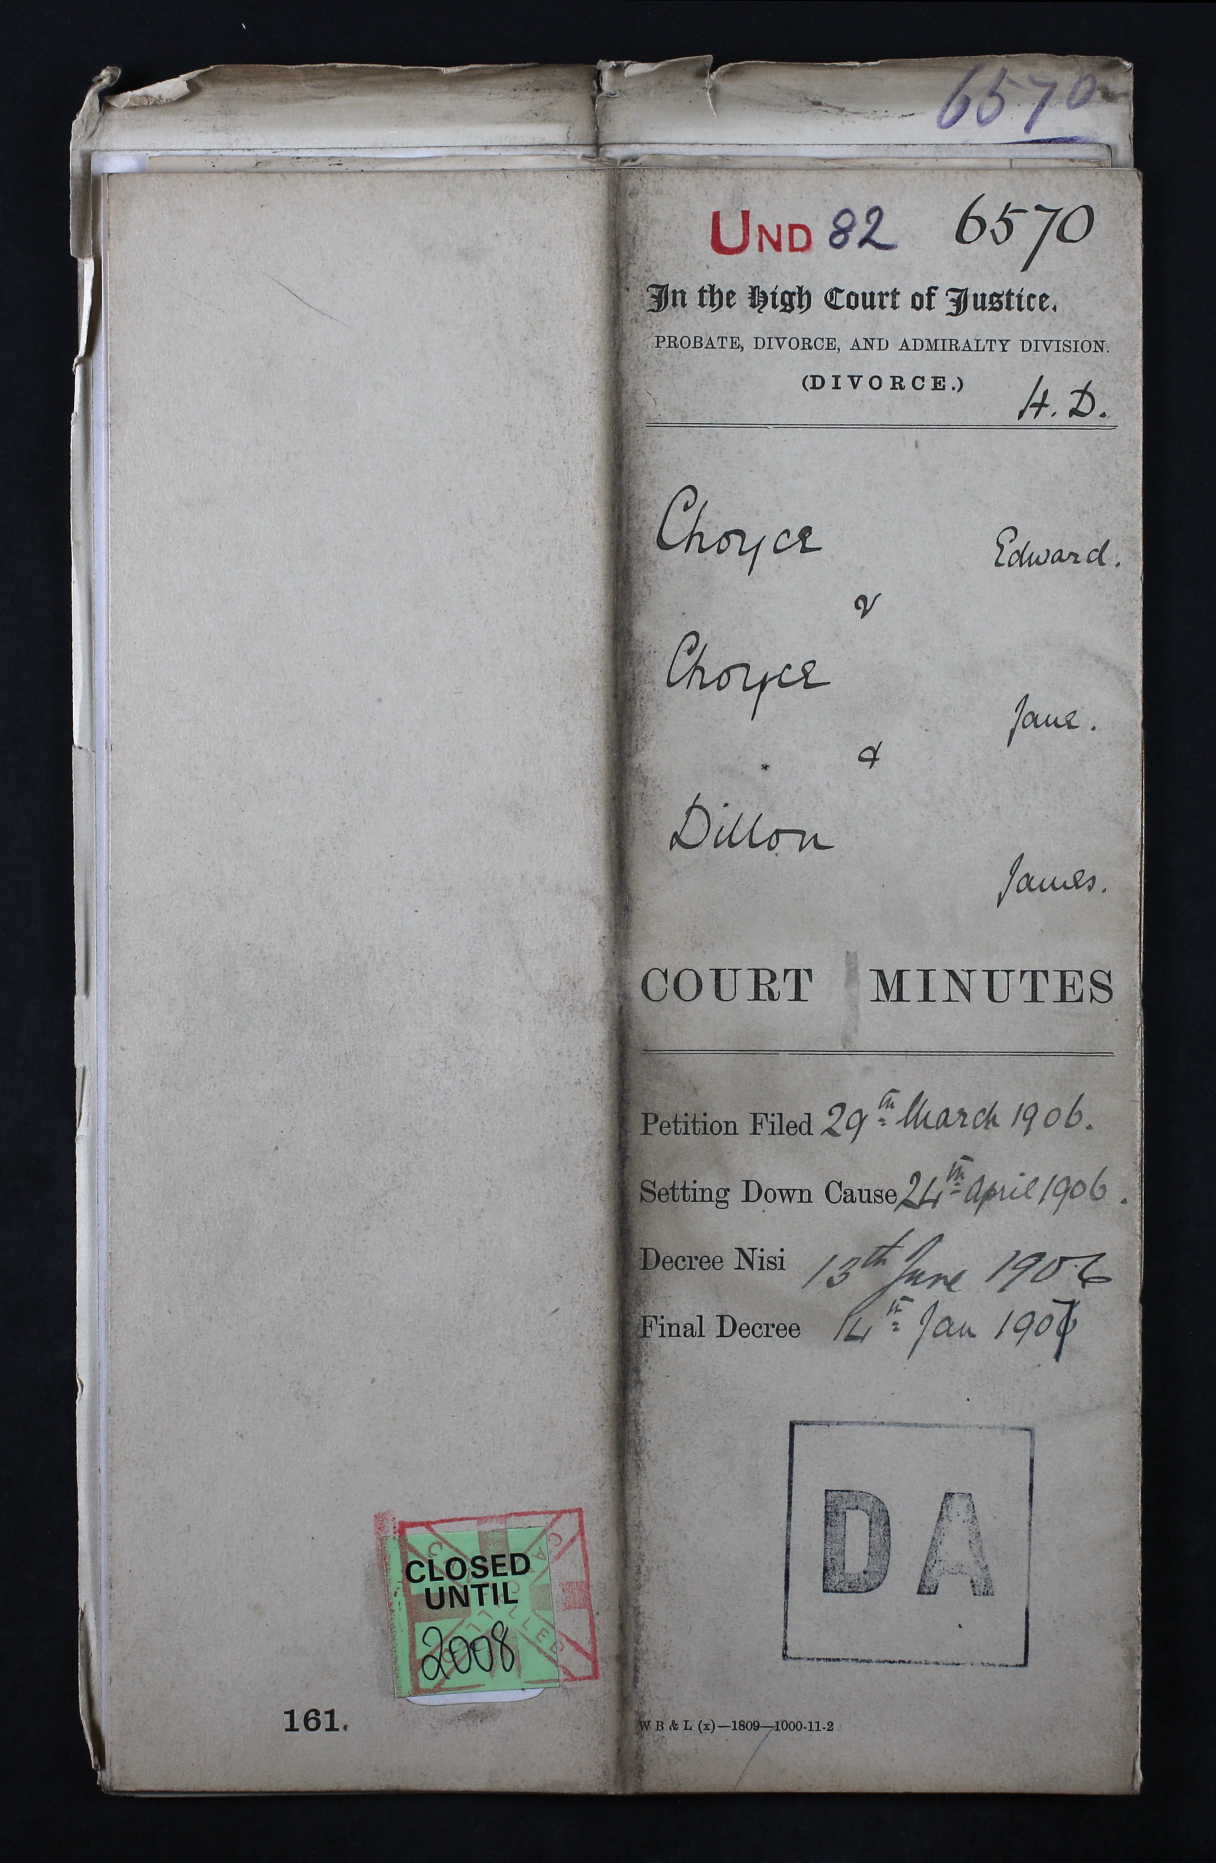 6570
UND 82 6570
In the High Court of Justice.
PROBATE, DIVORCE, AND ADMIRALTY DIVISION.
(DIVORCE.)
H. D.
Choyce Edward.
v
Choyce Jane.
&
Dillon James.
COURT MINUTES
Petition Filed 29th March 1906.
Setting Down Cause 24th April 1906.
Decree Nisi 13th June 1906
Final Decree 14th Jan 1907
DA
CANCELLED
CLOSED
UNTIL
2008
161.
W B & L (x)—1809—1000-11-2